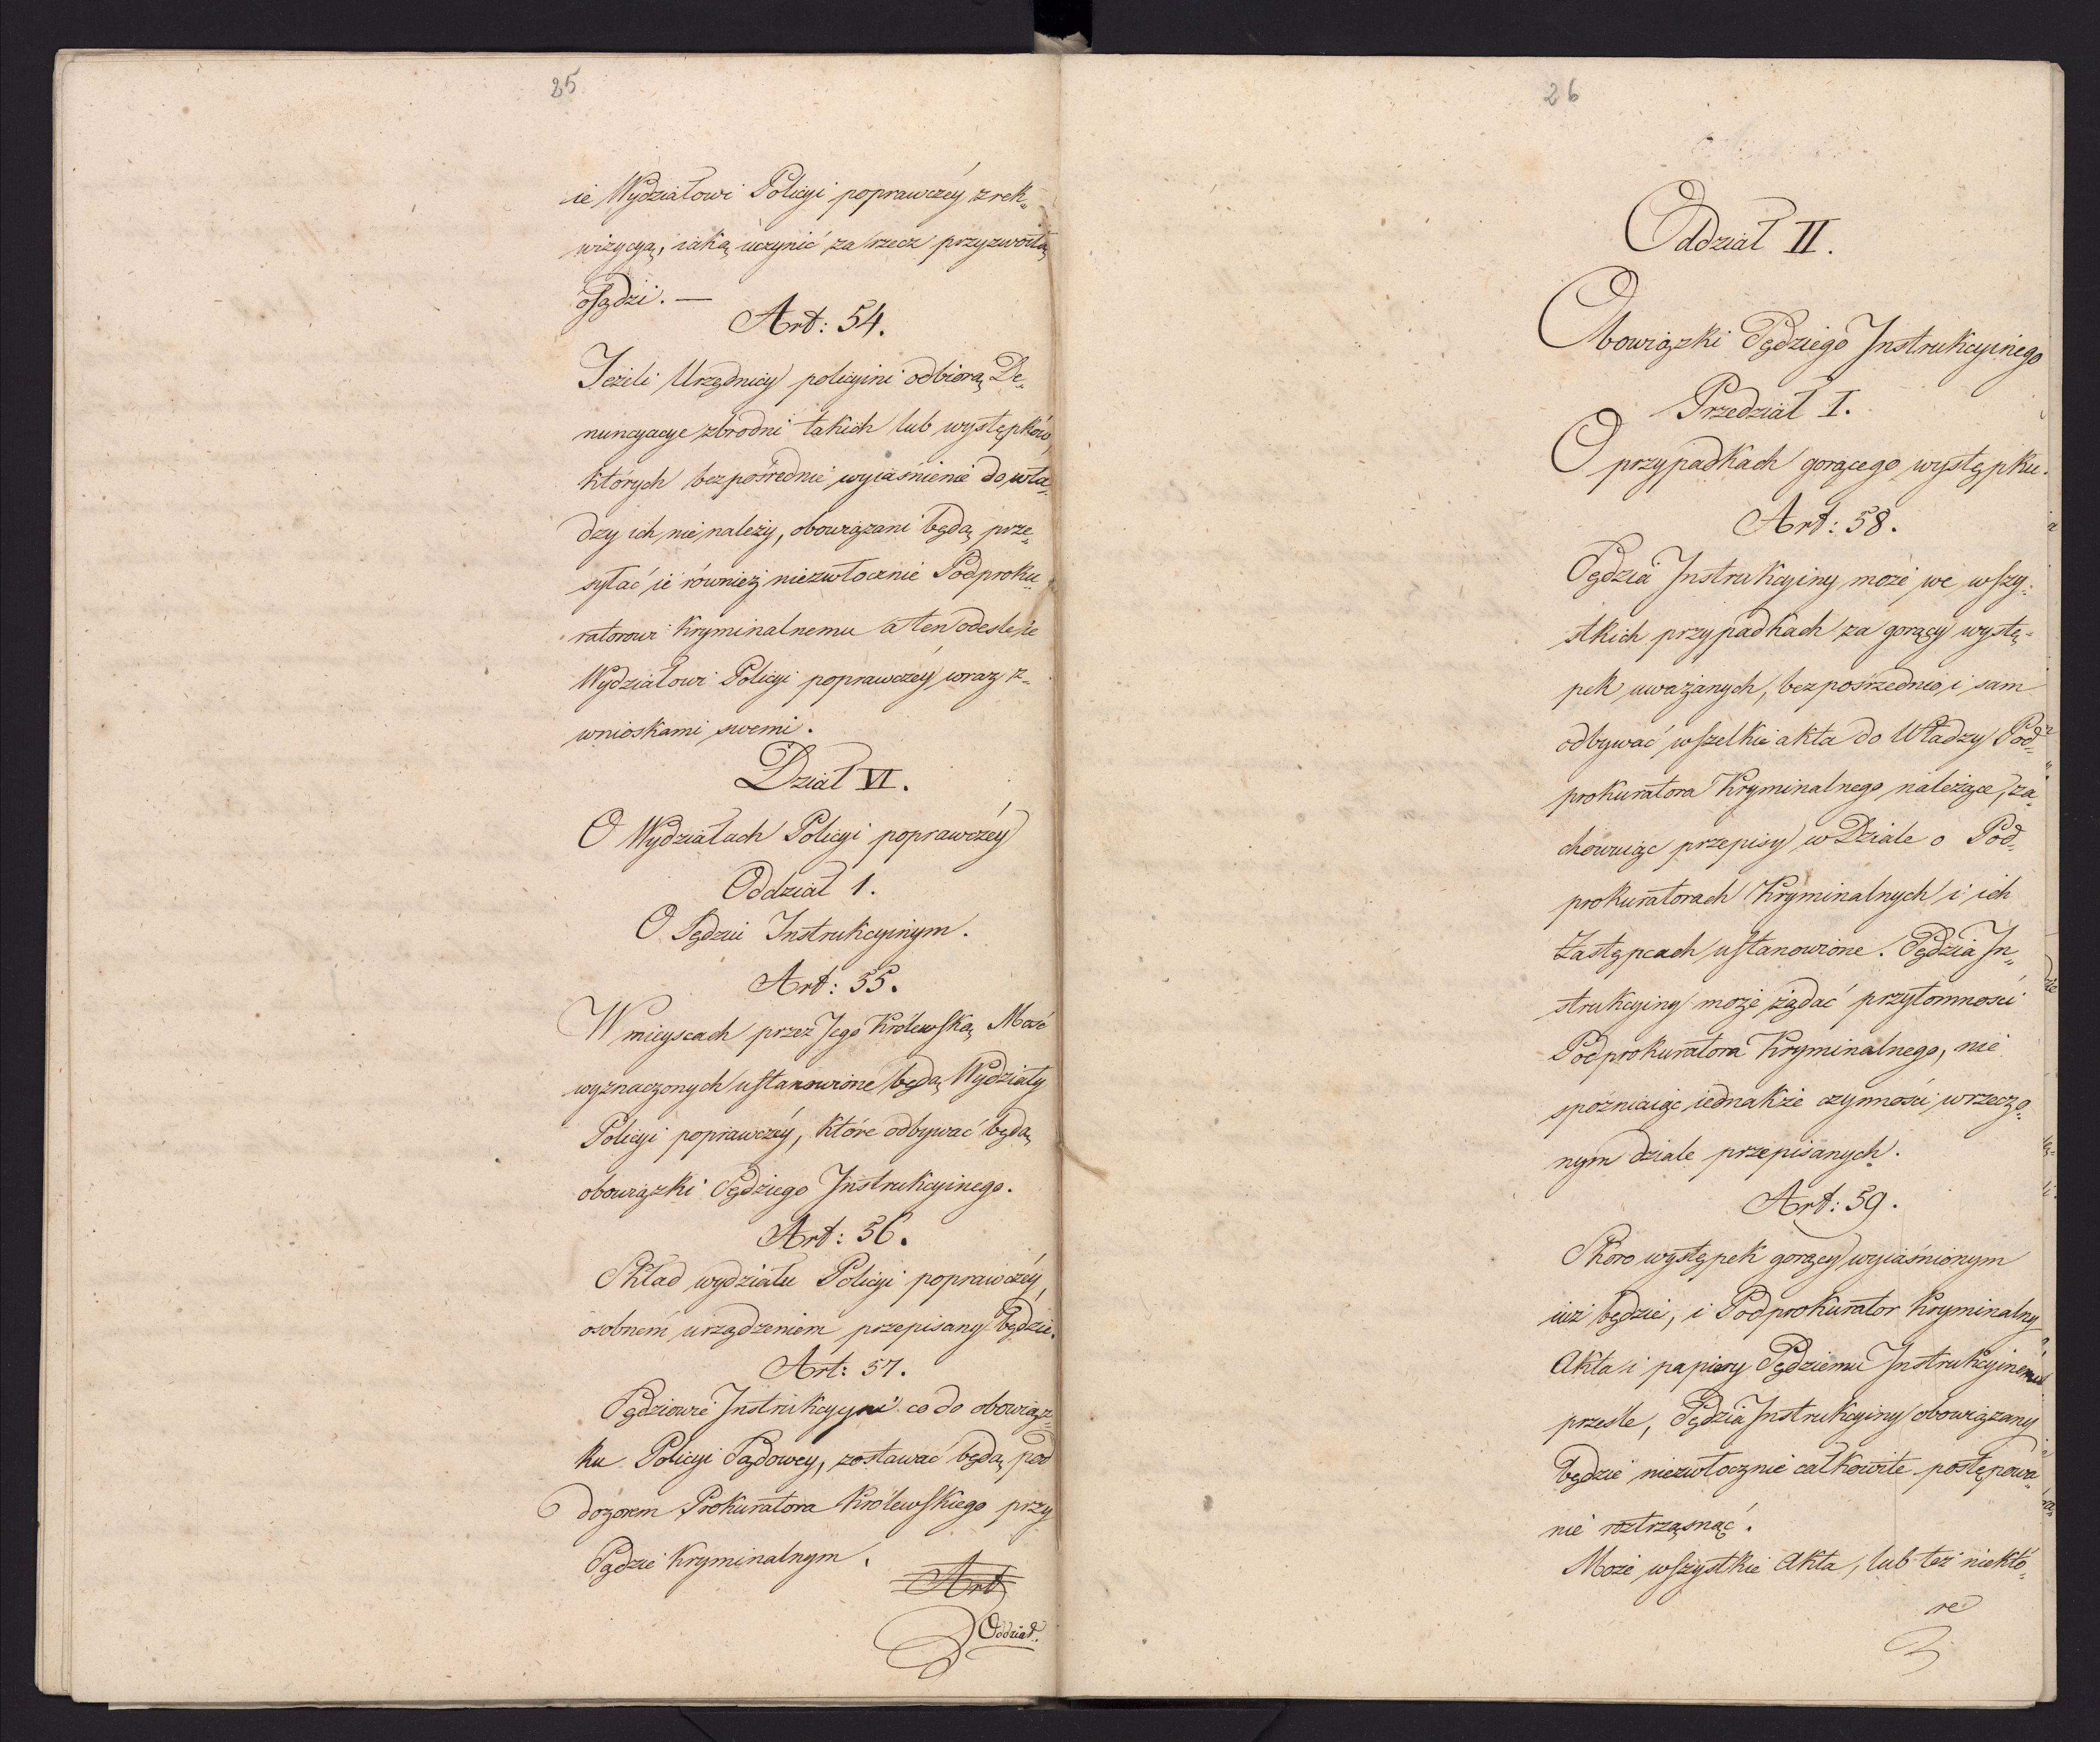 25
ie Wydziałowi Policyi poprawczéy z rek„
wizycyą, iaką uczynić za rzecz przyzwoitą
osądzi. —
Art: 54.
Jeżeli Urzędnicy policyini odbiorą De„
nuncyacye zbrodni takich lub występków,
których bezpośrednie wyiaśnienie do wła„
dzy ich nie należy, obowiązani będą prze„
syłać ie również niezwłocznie Podproku„
ratorowi Kryminalnemu a ten odeśle ie
Wydziałowi Policyi poprawczéy wraz z„
wnioskami swemi.
Dział VI.
O Wydziałach Policyi poprawczéy
Oddział 1.
O Sędzii Instrukcyinym.
Art: 55.
W mieyscach przez Jego Królewską Mość
wyznaczonych ustanowione będą Wydziały
Policyi poprawczéy, które odbywać będą
obowiązki Sędziego Instrukcyinego.
Art: 56.
Skład wydziału Policyi poprawczéy,
osobnem urządzeniem przepisany będzie.
Art: 57.
Sędziowie Instrukcyyni co do obowiąz„
ku Policyi Sądowey, zostawać będą pod
dozorem Prokuratora Królewskiego przy
Sądzie Kryminalnym.
Art
Oddział.
26
Oddział II.
Obowiązki Sędziego Instrukcyinego
Przedział I.
O przypadkach gorącego występku.
Art: 58.
Sędzia Instrukcyiny może we wszy„
stkich przypadkach za gorący wystę„
pek uważanych, bezpośrzednio i sam
odbywać wszelkie akta do Władzy Pod„
prokuratora Kryminalnego należące, za„
chowuiąc przepisy w Dziale o Pod„
prokuratorach Kryminalnych i ich
Zastępcach ustanowione. Sędzia In„
strukcyiny może żądać przytomności
Podprokuratora Kryminalnego, nie
spóźniaiąc iednakże czynności w rzeczo„
nym dziale przepisanych.
Art: 59.
Skoro występek gorący wyiaśnionym
iuż będzie, i Podprokurator Kryminalny
Akta i papiery Sędziemu Instrukcyinemu
prześle, Sędzia Instrukcyiny obowiązany
będzie niezwłocznie całkowite postępowa„
nie roztrząsnąć.
Może wszystkie Akta, lub też niektó„
re